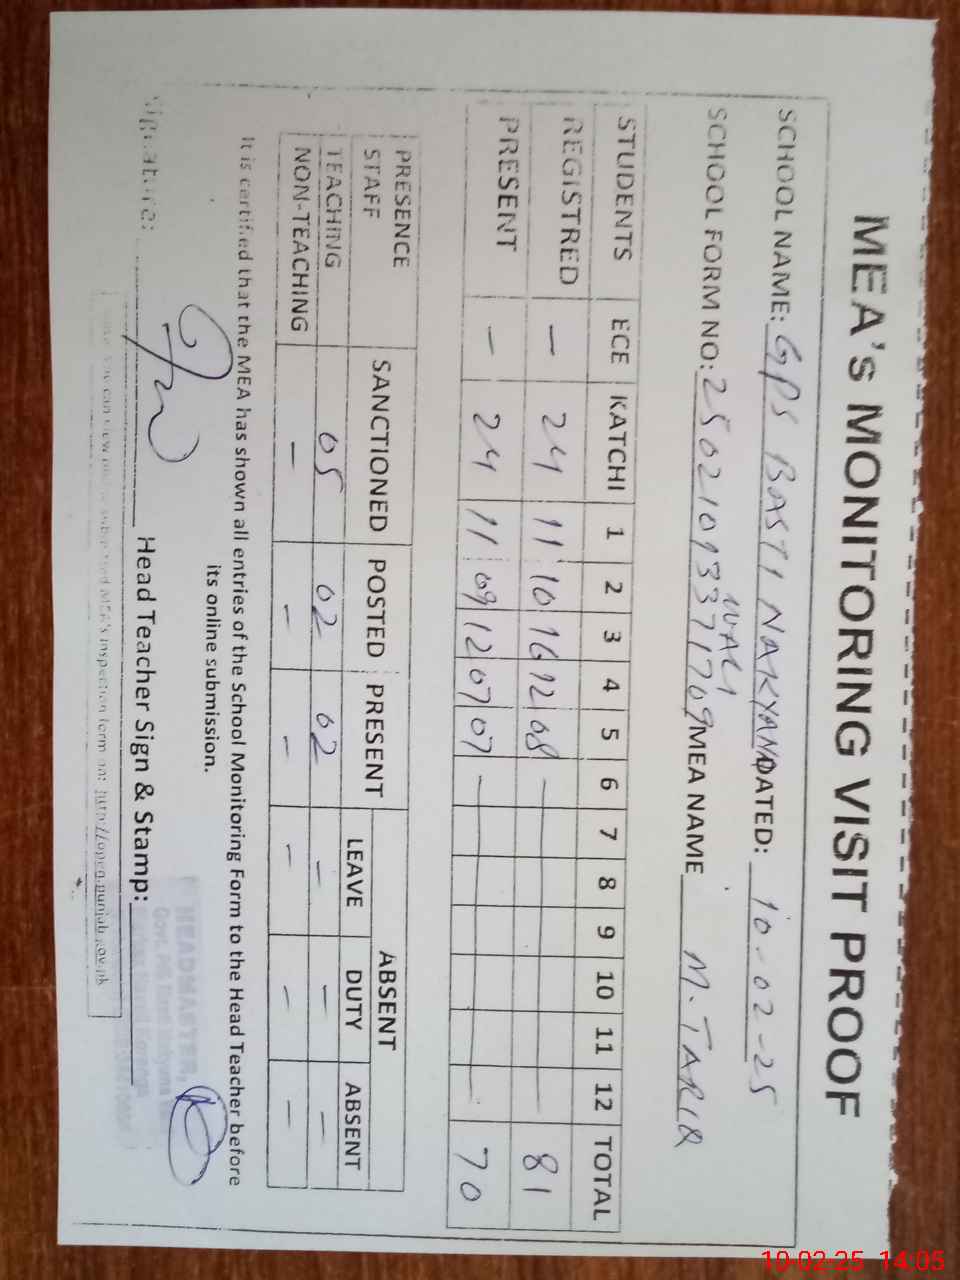 MEA'S MONITORING VISIT PROOF
SCHOOL NAME: GPS BASTI NAKYANA DATED: 10-02-25
WALI
SCHOOL FORM NO: 25021093371709 MEA NAME M. TARIQ
STUDENTS ECE KATCHI 1 2 3 4 5 6 7 8 9 10 11 12 TOTAL
REGISTRED — 24 11 10 16 12 08 — 81
PRESENT — 24 11 09 12 07 07 — 70
PRESENCE STAFF SANCTIONED POSTED PRESENT ABSENT
LEAVE DUTY ABSENT
TEACHING 05 02 02 — — —
NON-TEACHING — — — — — —
It is certified that the MEA has shown all entries of the School Monitoring Form to the Head Teacher before
its online submission.
Signature: Head Teacher Sign & Stamp:
HEADMASTER
you can view submitted MEA's inspection form on: http://open.punjab.gov.pk
10-02-25 14:05